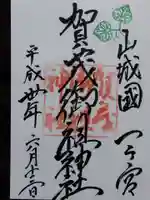 山城國一之宮
賀茂御祖神社
平成卅年六月十二日